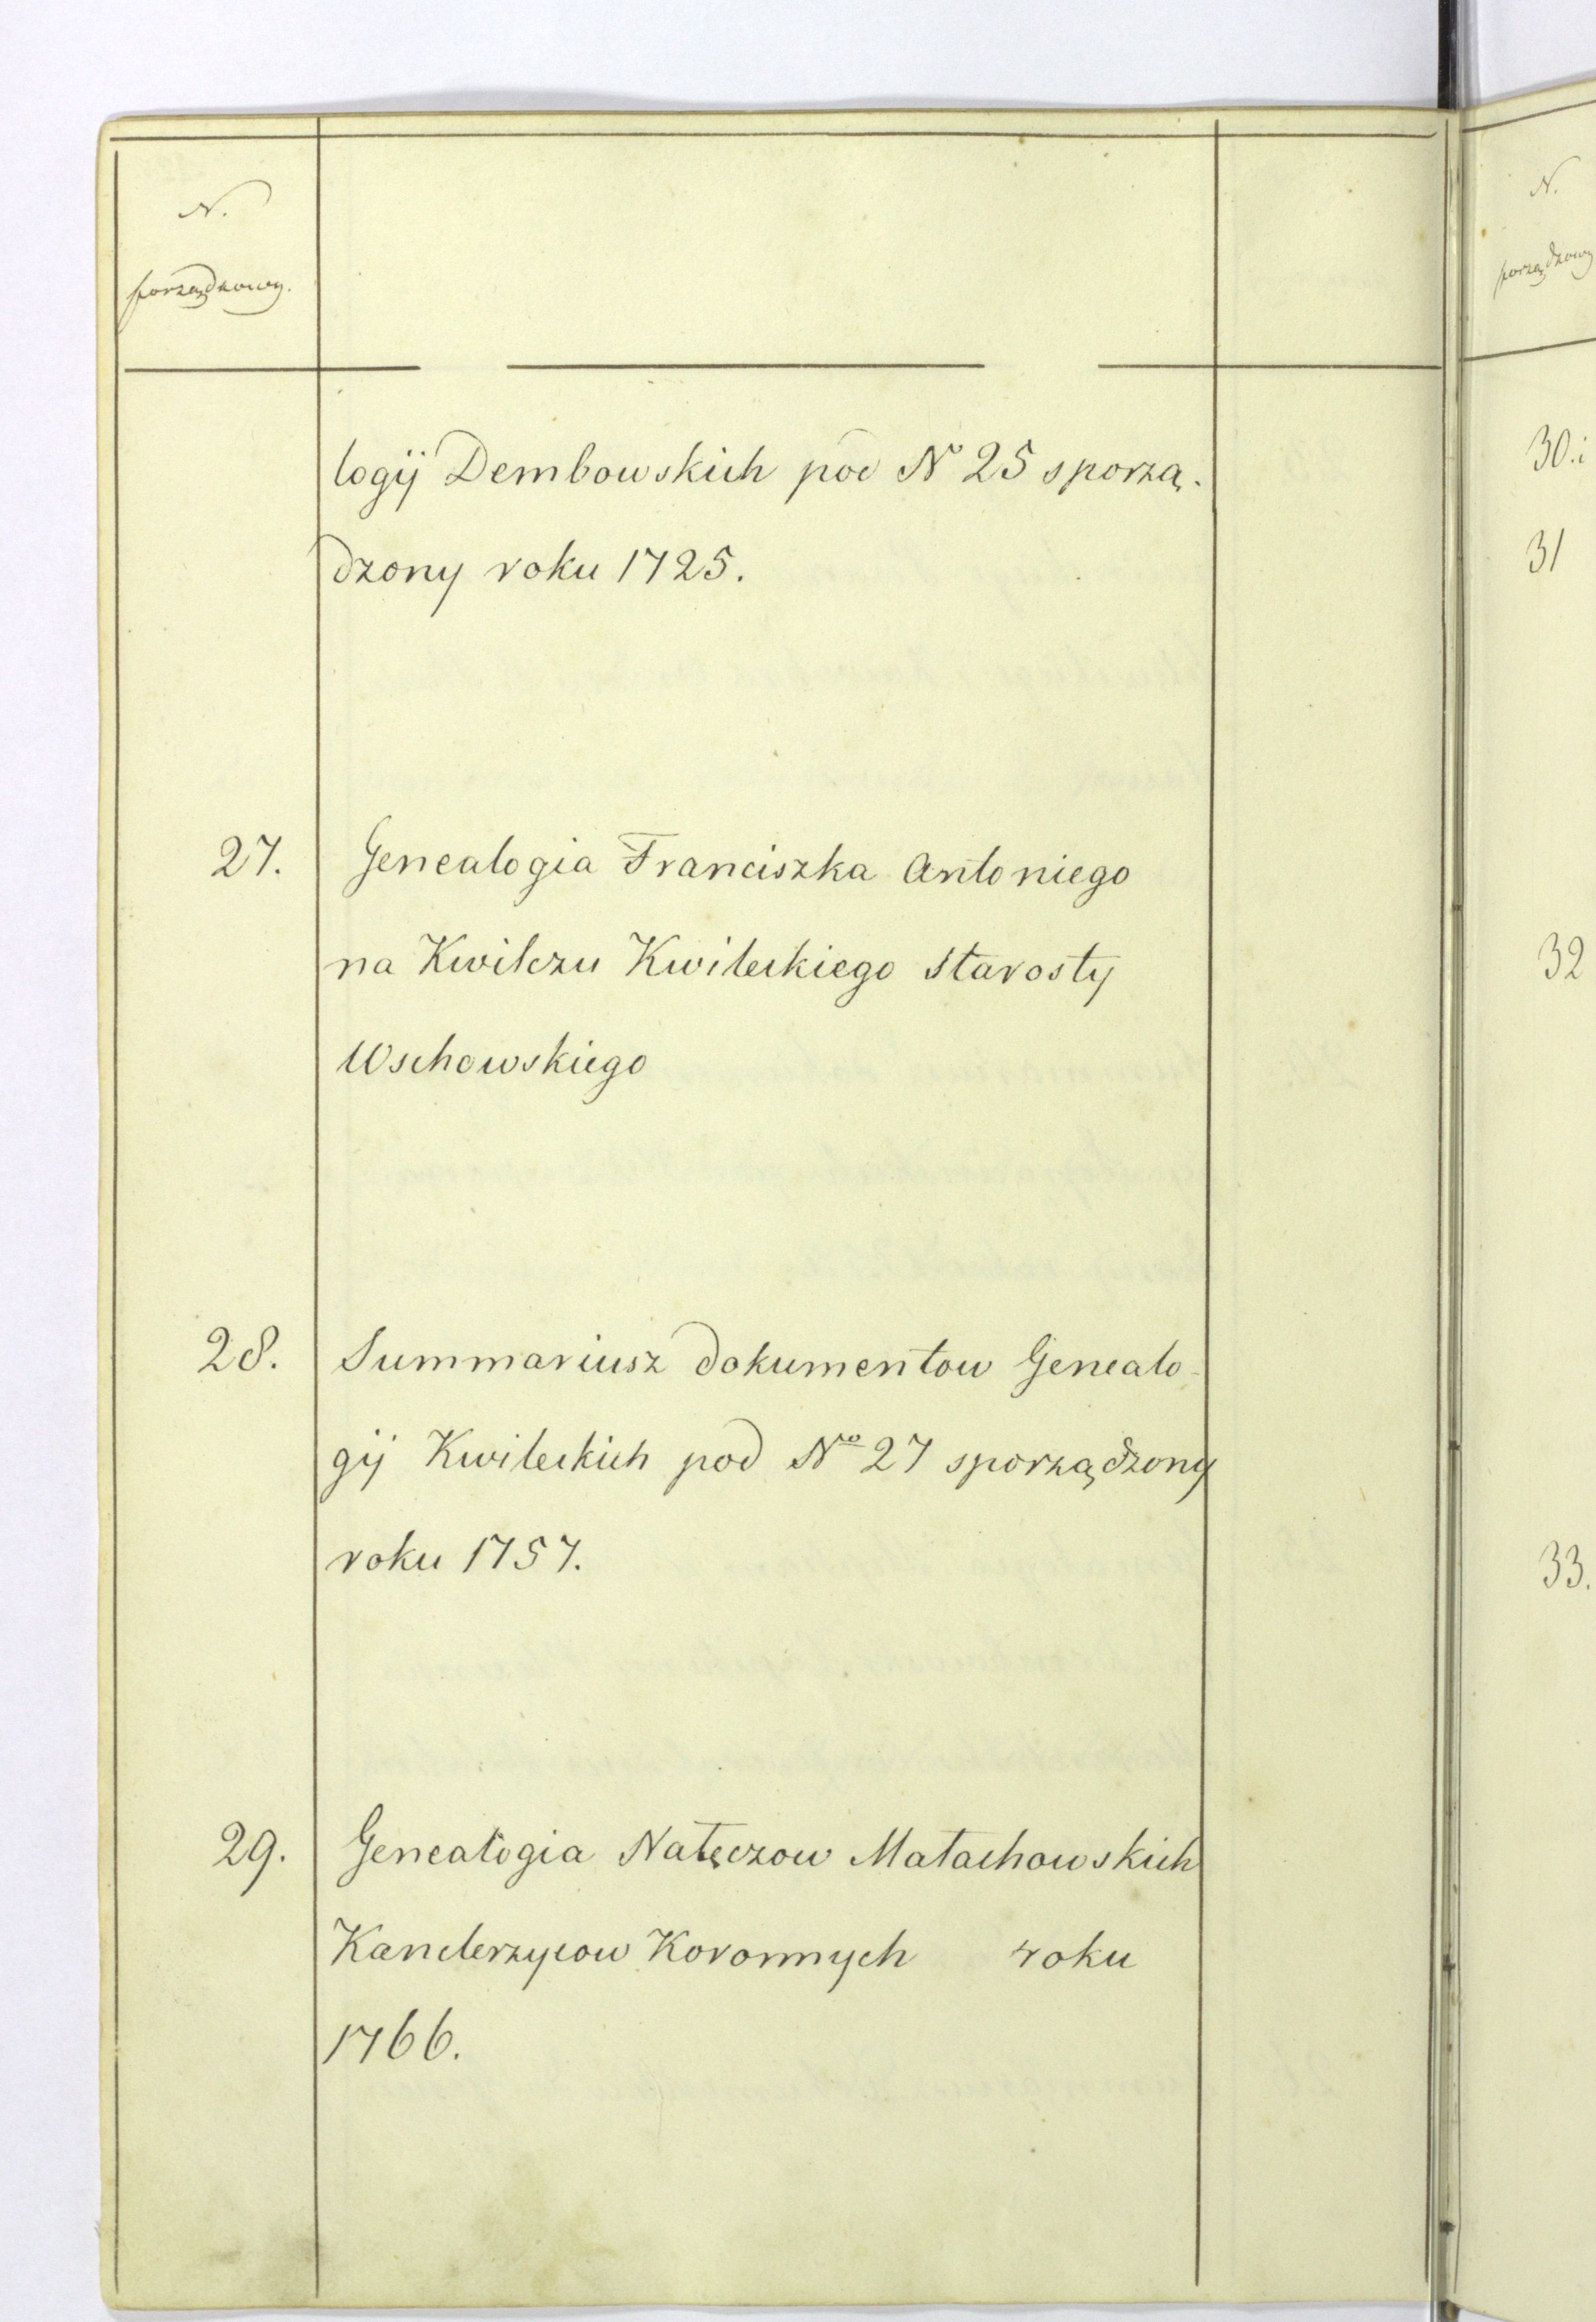 N.
porządkowy.
logij Dembowskich pod No 25 sporzą-
dzony roku 1725.
27. Genealogia Franciszka Antoniego
na Kwilczu Kwileckiego Starosty
Wschowskiego
28. Summariusz dokumentow Genealo-
gij Kwileckich pod No 27 sporządzony
roku 1757.
29. Genealogia Nałęczow Małachowskich
Kanclerzycow Koronnych roku
1766.
N.
porządkowy
30.i
31
32
33.